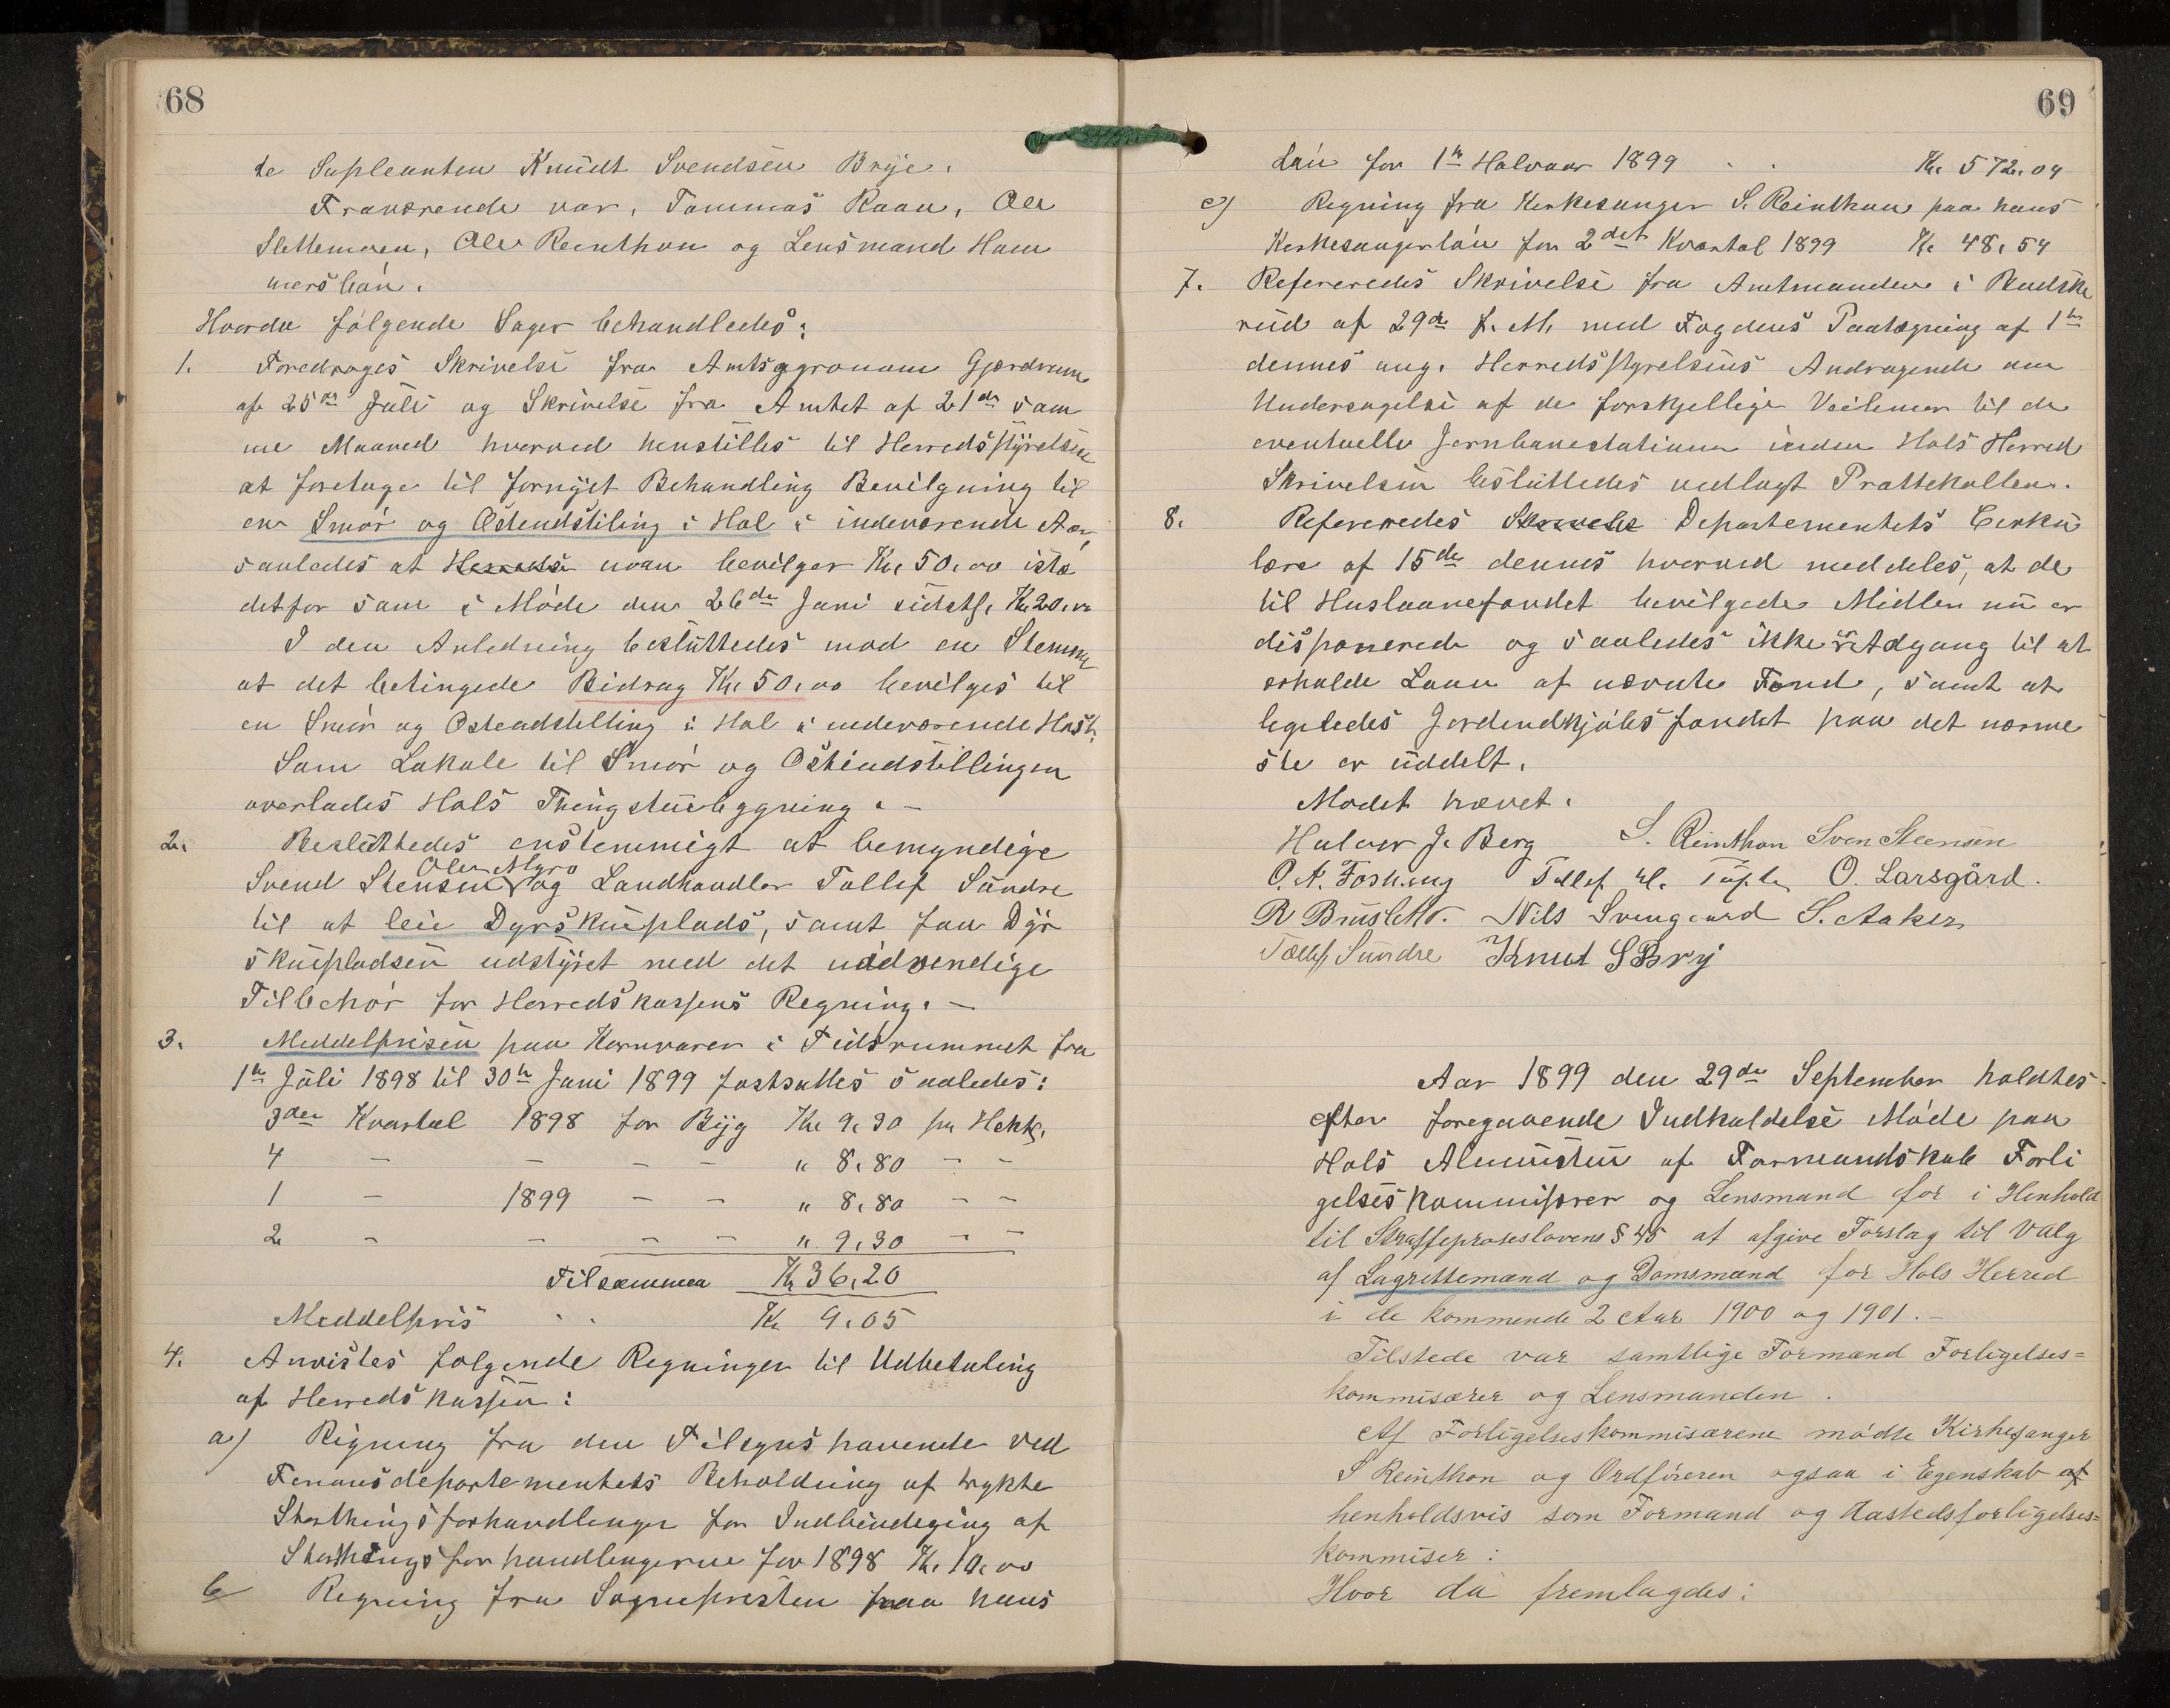 68
te Supleanten Knudt Svendsen Brye.
Fraværende var, Tommas Raan, Ole
Slettemoen, Ole Reinthon og Lensmand Ham
mersbøn.
Hvorda følgende Sager behandledes:
1. Foredroges Skrivelse fra Amtsagronom Gjerdrum
af 25de Juli og Skrivelse fra Amtet af 21de sam
me Maaned hvorved henstilles til Herredsstyrelsen
at foretage til fornyet Behandling Bevilgning til
en Smør og Osteudstiling i Hol i indeværende Aar,
saaledes at Herreds man bevilger Kr. 50,00 iste
detfor som i Møde den 26de Juni sidstl. Kr. 20,00
I den Anledning besluttedes mod en Stemme
at det betingede Bidrag Kr. 50,00 bevilges til
en Smør og Osteudstilling i Hol i indeværende Høst.
Som Lokale til Smør og Osteudstillingen
overlades Hols Thingstuebygning. —
2. Besluttedes enstemmigt at bemyndige
Ole Myro
Svend Stensen og Landhandler Tollef Sundre
til at leie Dyrskueplads, samt faa Dyr
skuepladsen udstyret med det nødvendige
Tilbehør for Herredskassens Regning. —
3. Meddelprisen paa Kornvarer i Tidsrummet fra
1te Juli 1898 til 30te Juni 1899 fastsattes saaledes:
3die Kvartal 1898 for Byg Kr 9,30 pr Hektl.
4 — — — — " 8,80 — —
1 — 1899 — — " 8,80 — —
2 — — — — " 9,30 — —
Tilsammen Kr 36,20
Meddelpris . . Kr 9,05
4. Anvistes følgende Regninger til Udbetaling
af Herredskassen:
a) Regning fra den Tilsynshavende ved
Finansdepartementets Beholdning af trykte
Storthingsforhandlinger for Indbindeging af
Storthingsforhandlingerne for 1898 Kr. 10,00
b Regning fra Sognepresten paa hans
69
Løn for 1te Halvaar 1899 . . Kr. 572,04
c) Regning fra Kirkesanger S. Reinthon paa hans
Kirkesangerløn for 2det Kvartal 1899 Kr 48,54
7. Refereredes Skrivelse fra Amtmanden i Buske
rud af 29de f. M. med Fogdens Paategning af 1te
dennes ang. Herredsstyrelsens Andragende om
Undersøgelse af de forskjellige Veilinier til de
eventuelle Jernbanestationer inden Hols Herred
Skrivelsen besluttedes vedlagt Prottekollen.
8. Refereredes Skrivelse Departementets Cirku
lære af 15de dennes hvorved meddeles, at de
til Huslaanefondet bevilgede Midler nu er
disponerede og saaledes ikke er Adgang til at
erholde Laan af nævnte Fond, samt at
ligeledes Jordindkjøbsfondet paa det nærme
ste er uddelt.
Mødet hævet.
Halvor J. Berg S. Reinthon Sven Steensen
O. A. Fosheng Tollef H. Tufte O. Larsgård.
R Bruslett. Nils Svengaard S. Aaker
Tollef Sundre Knut S Bry
Aar 1899 den 29de September holdtes
efter foregaaende Indkaldelse Møde paa
Hols Almustu af Formandskab Forli
gelseskommisærer og Lensmand for i Henhold
til Straffeproseslovens § 45 at afgive Forslag til Valg
af Lagrettemænd og Domsmænd for Hols Herred
i de kommende 2 Aar 1900 og 1901. —
Tilstede var samtlige Formænd Forligelses=
kommisærer og Lensmanden.
Af Forligelseskommisærene mødte Kirkesanger
S Reinthon og Ordføreren ogsaa i Egenskab af
henholdsvis som Formand og Aastedsforligelses=
kommisær:
Hvor da fremlagdes: